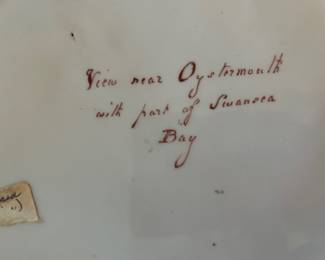 View near Oystermouth
with part of Swansea
Bay